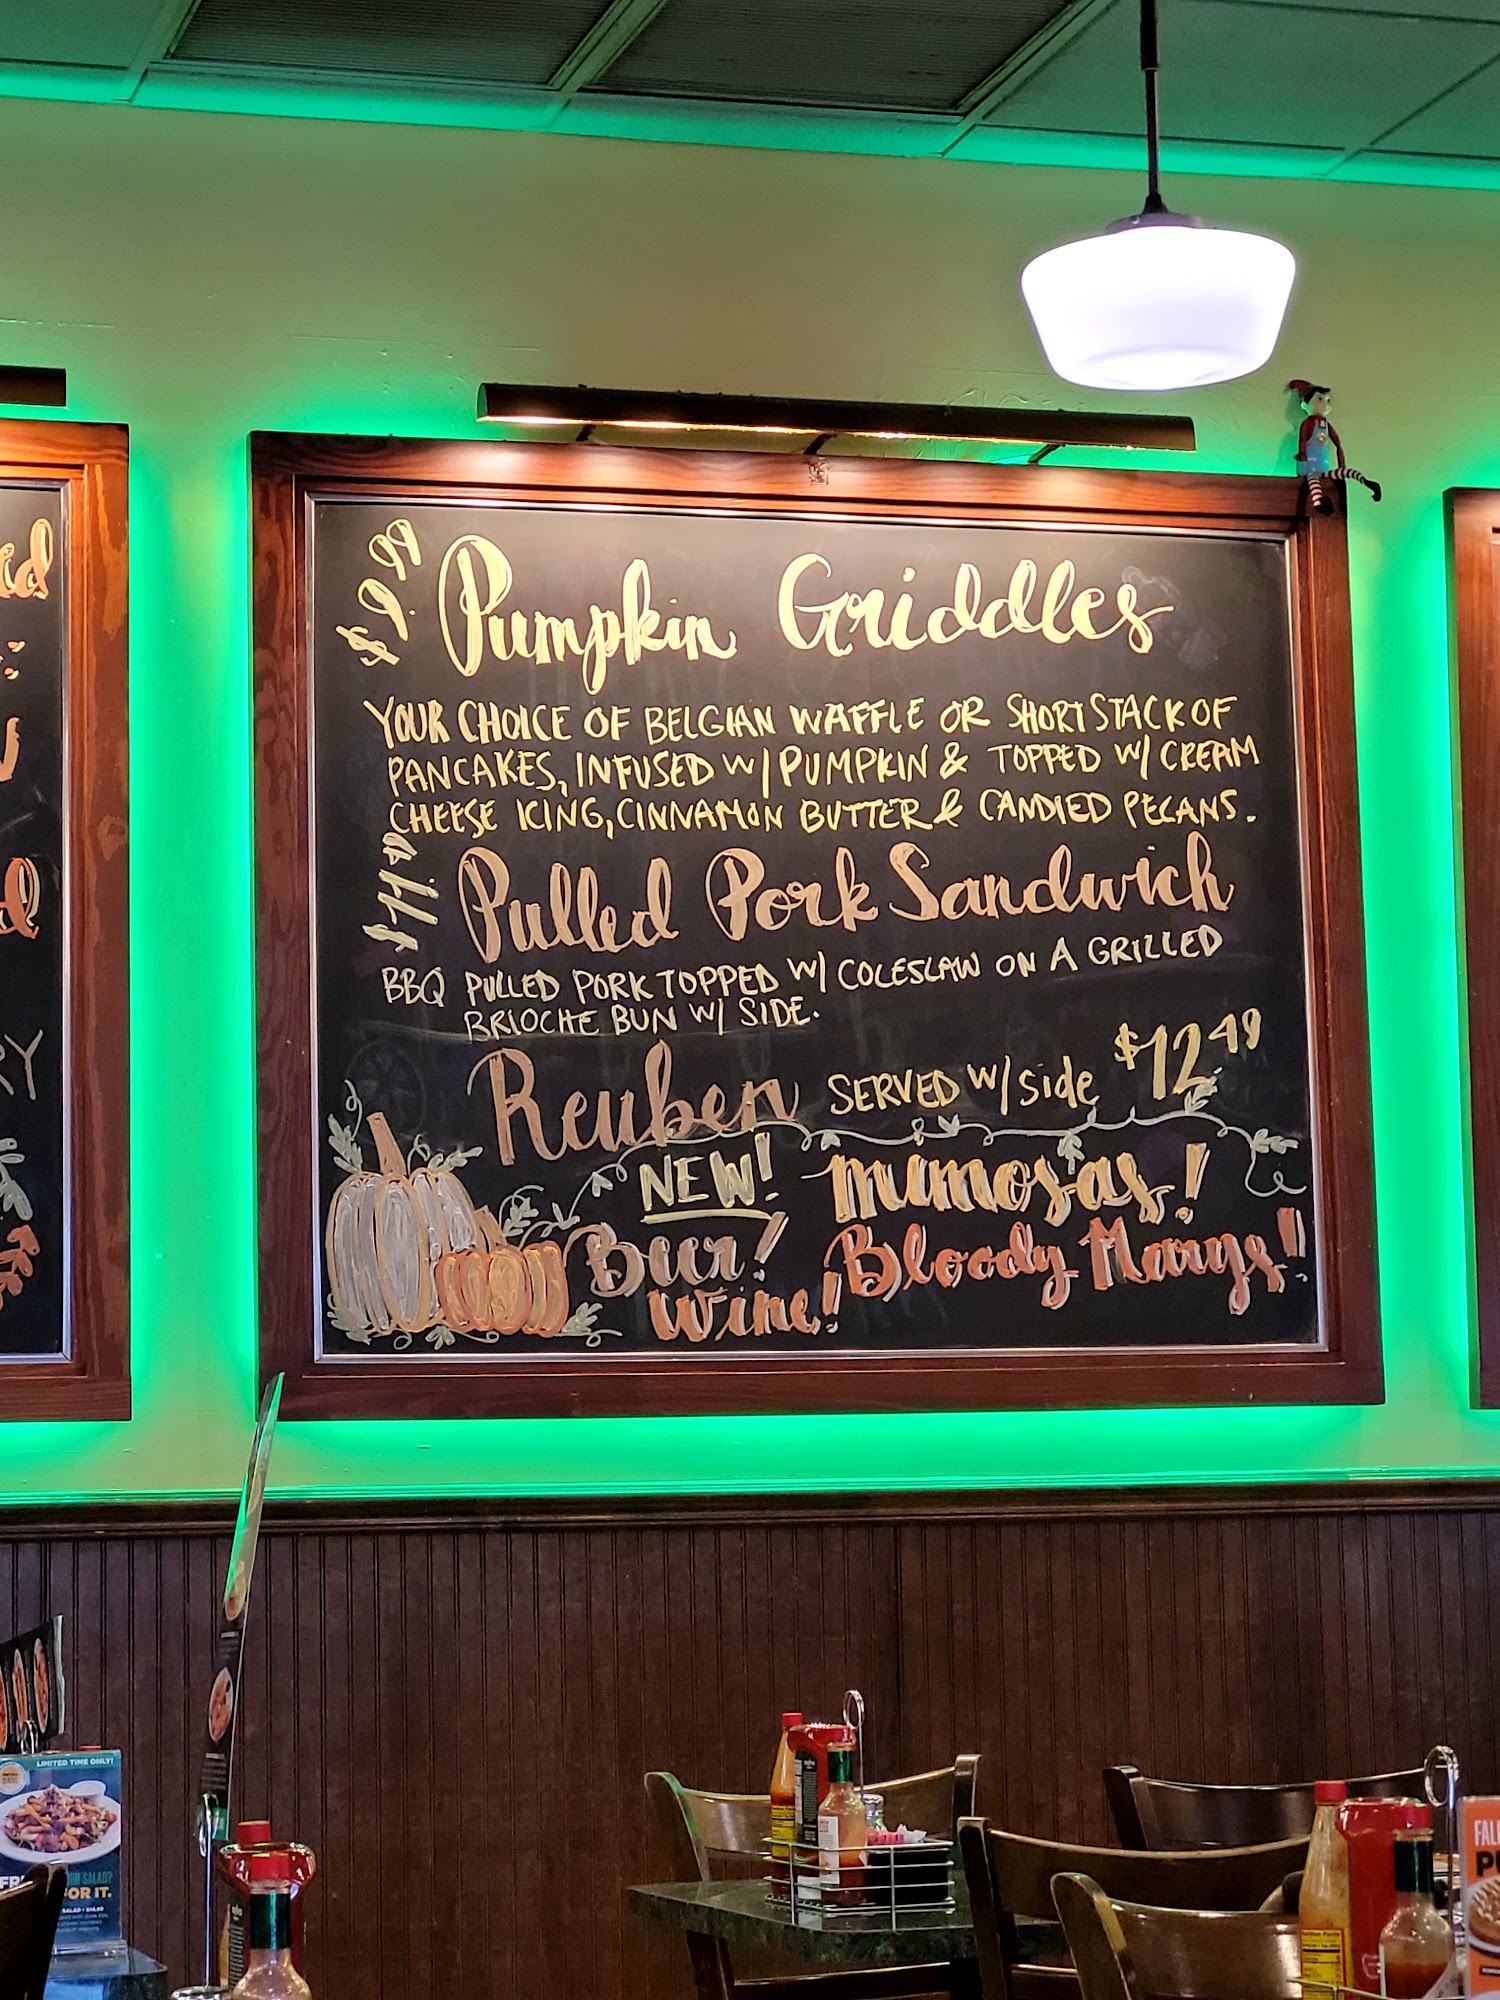 Pumpkin Griddles
YOUR CHOICE OF BELGIAN WAFFLE OR SHORT STACK OF
PANCAKES, INFUSED W/ PUMPKIN & TOPPED W/ CREAM
CHEESE ICING, CINNAMON BUTTER & CANDIED PECANS.
Pulled Pork Sandwich
BBQ PULLED PORK TOPPED W/ COLESLAW ON A GRILLED
BRIOCHE BUN W/ SIDE.
Reuben SERVED W/ side $12.49
NEW! mimosas!
Beer! Bloody Marys!!
Wine!
LIMITED TIME ONLY!
FOR IT.